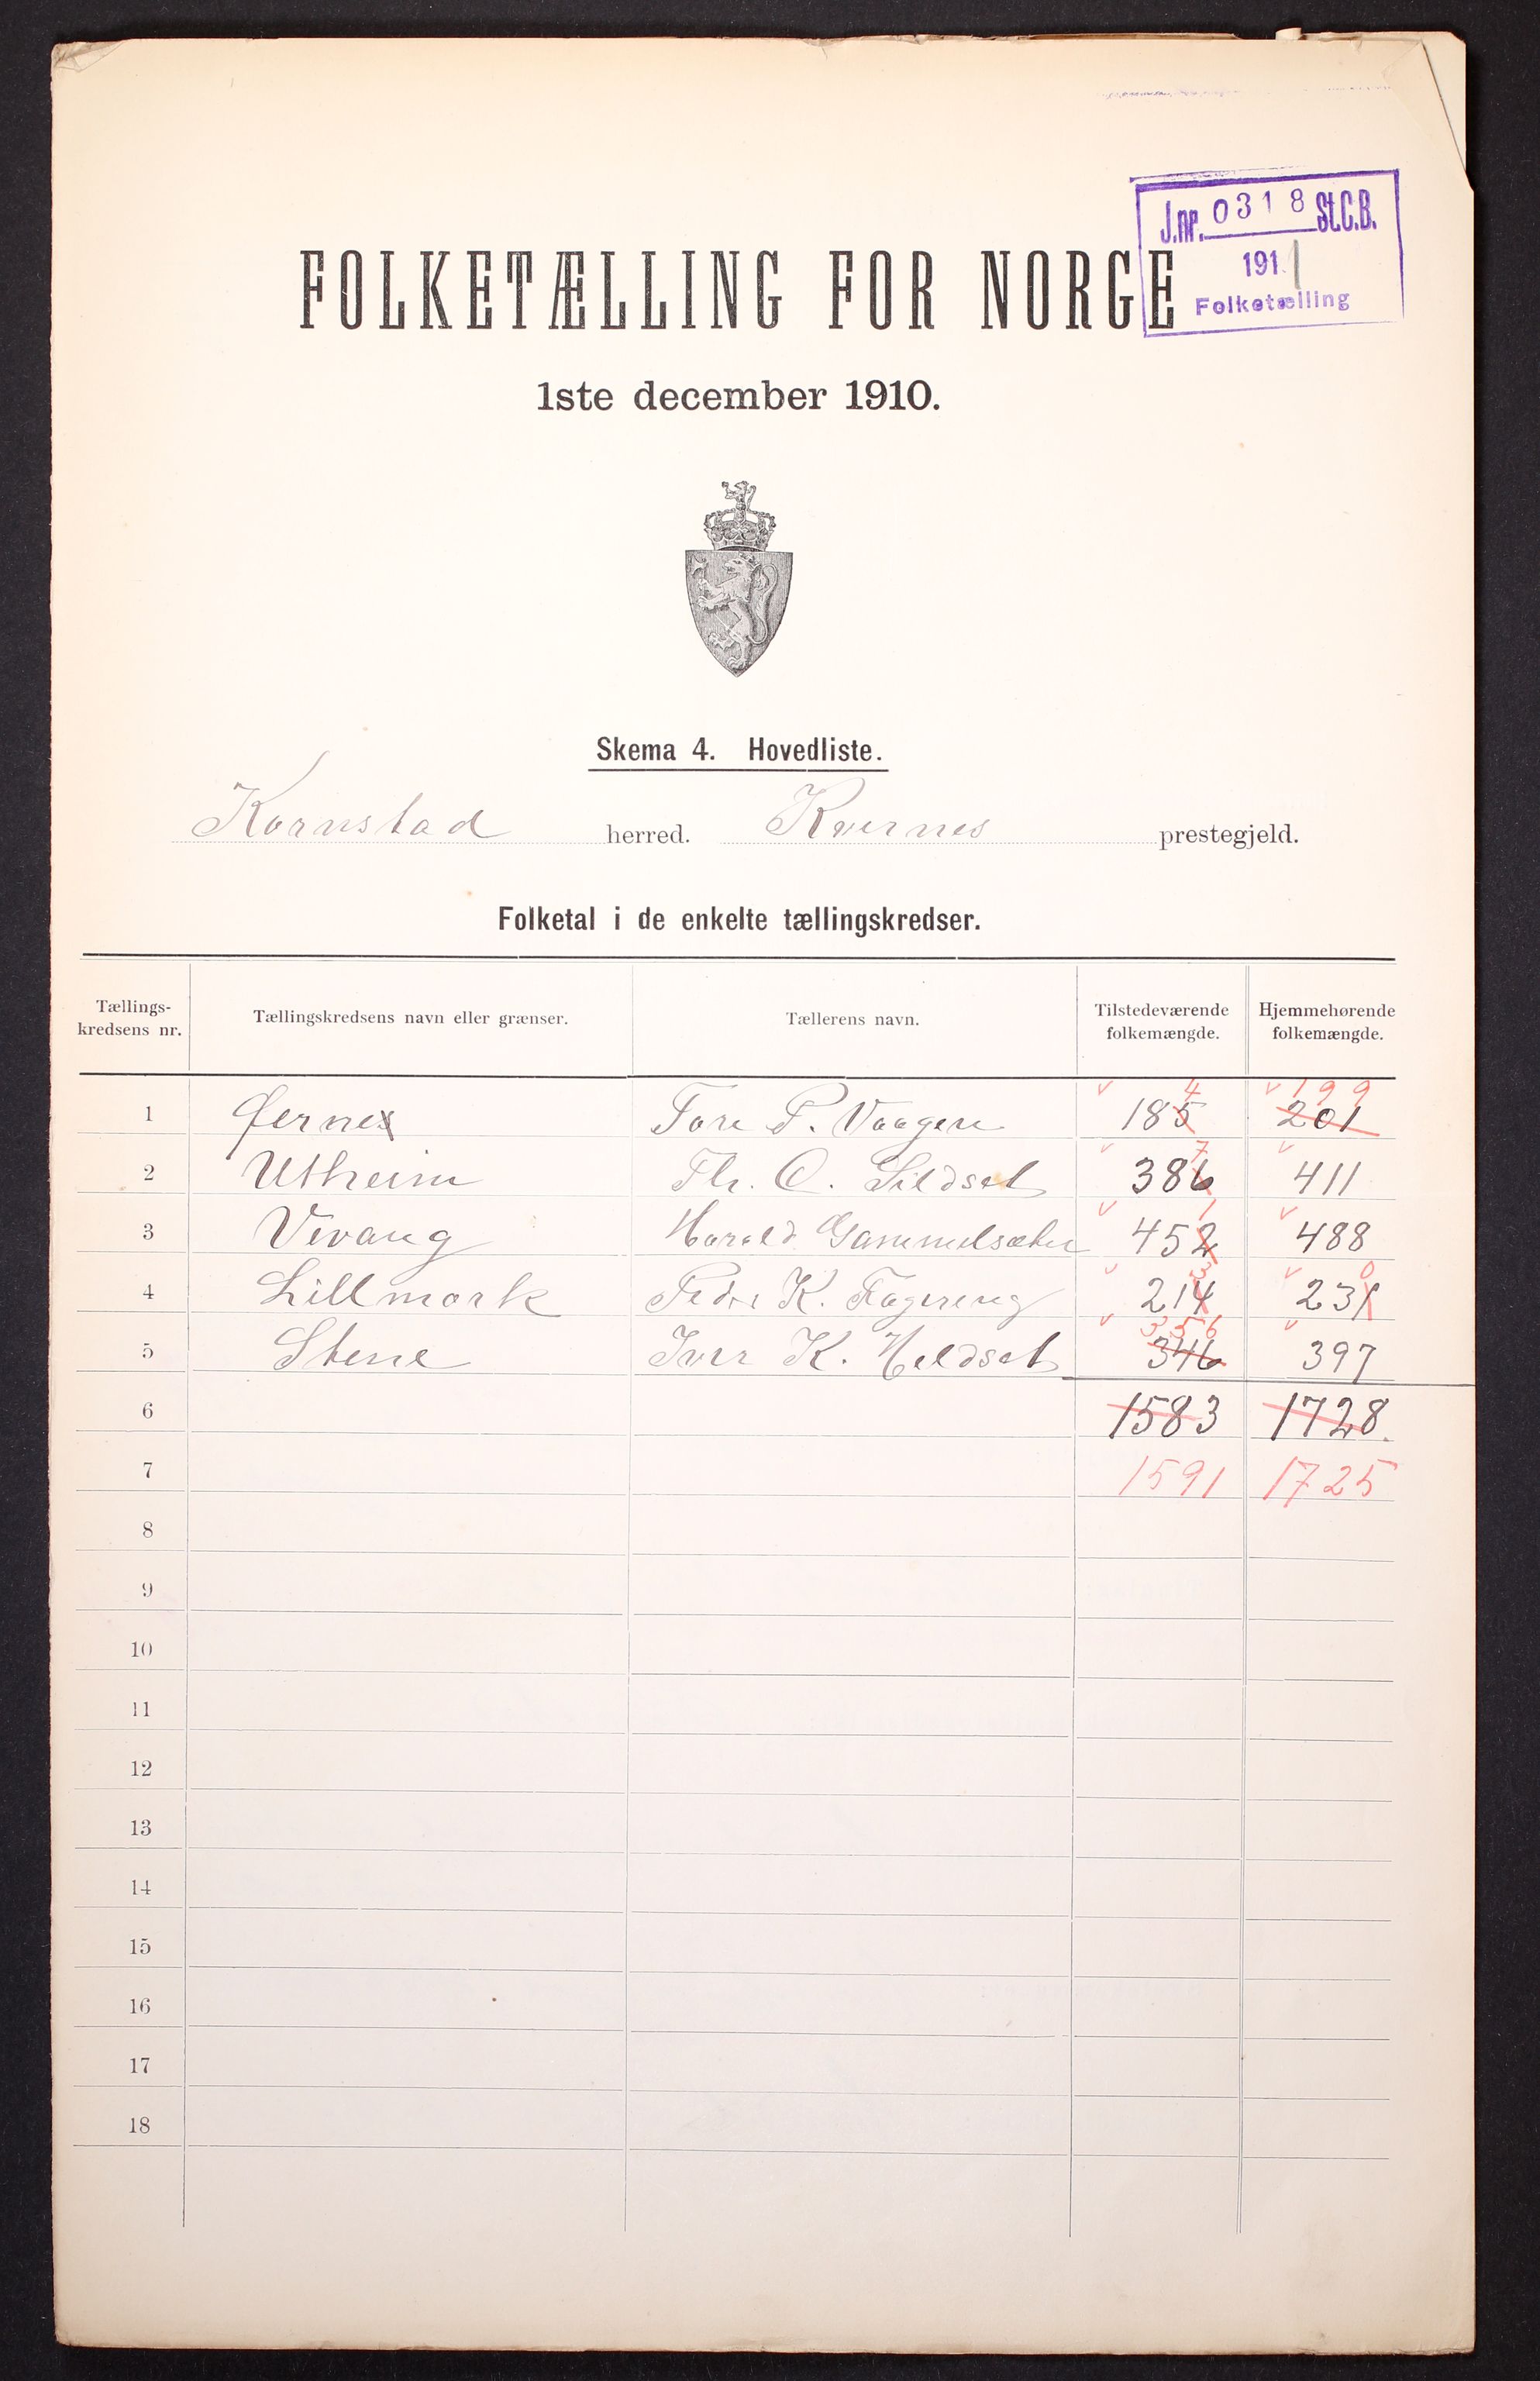 J.nr. 0318 St.C.B.
1911
Folketælling
FOLKETÆLLING FOR NORGE
1ste december 1910.
Skema 4. Hovedliste.
Kornstad herred. Kvernes prestegjeld.
Folketal i de enkelte tællingskredser.
Tællings-
kredsens nr.
Tællingskredsens navn eller grænser.
Tællerens navn.
Tilstedeværende
folkemængde.
Hjemmehørende
folkemængde.
4 199
1 Tore P. Vaagen 185 201
7
2 Utheim Th. O. Sildset 386 411
1
3 Vevang Harald Gammelsæter 452 488
3 0
4 Lillmork Peder K. Fagereng 214 231
356
5 Stene Iver K. Heldset 346 397
6 1583 1728.
7 1591 1725
8
9
10
11
12
13
14
15
16
17
18